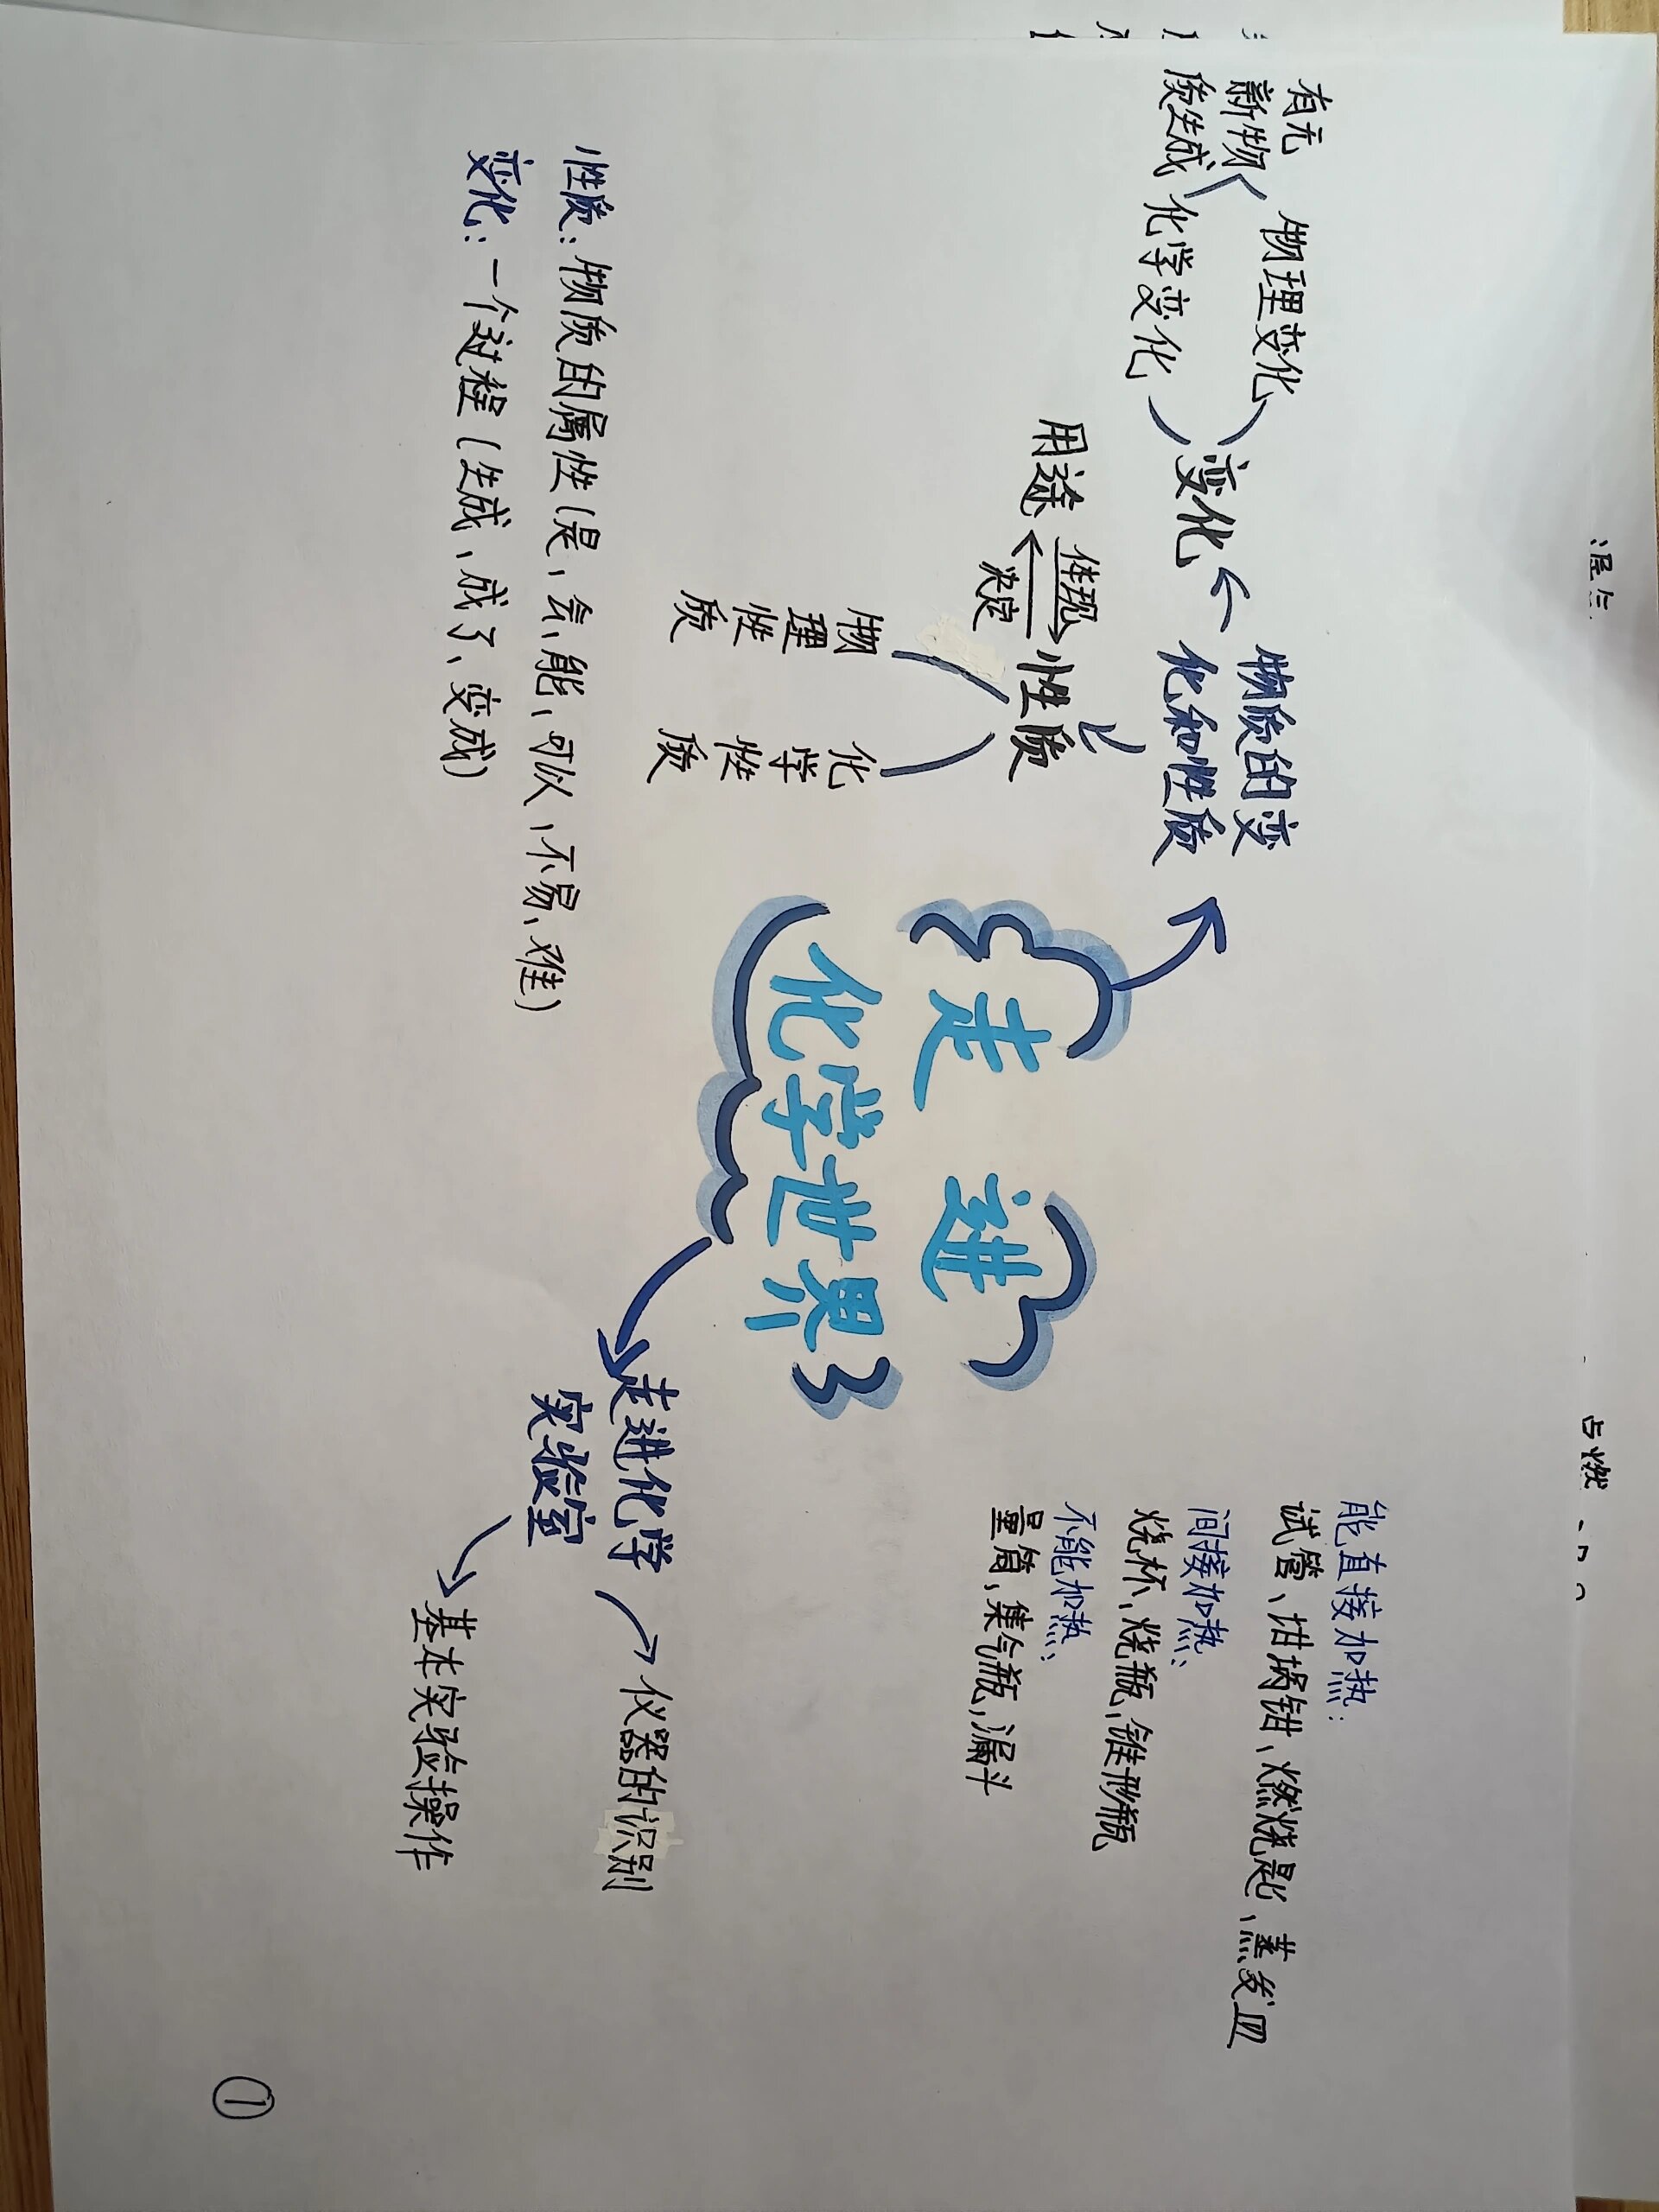 走进
化学世界
物质的变
化和性质
变化
物理变化
化学变化
有无
新物
质生成
性质
体现
决定
用途
物理性质
化学性质
性质：物质的属性（是、会、能、可以、不易、难）
变化：一个过程（生成、成了、变成）
能直接加热：
试管、坩埚钳、燃烧匙、蒸发皿
间接加热：
烧杯、烧瓶、锥形瓶
不能加热：
量筒，集气瓶，漏斗
走进化学
实验室
仪器的识别
基本实验操作
①